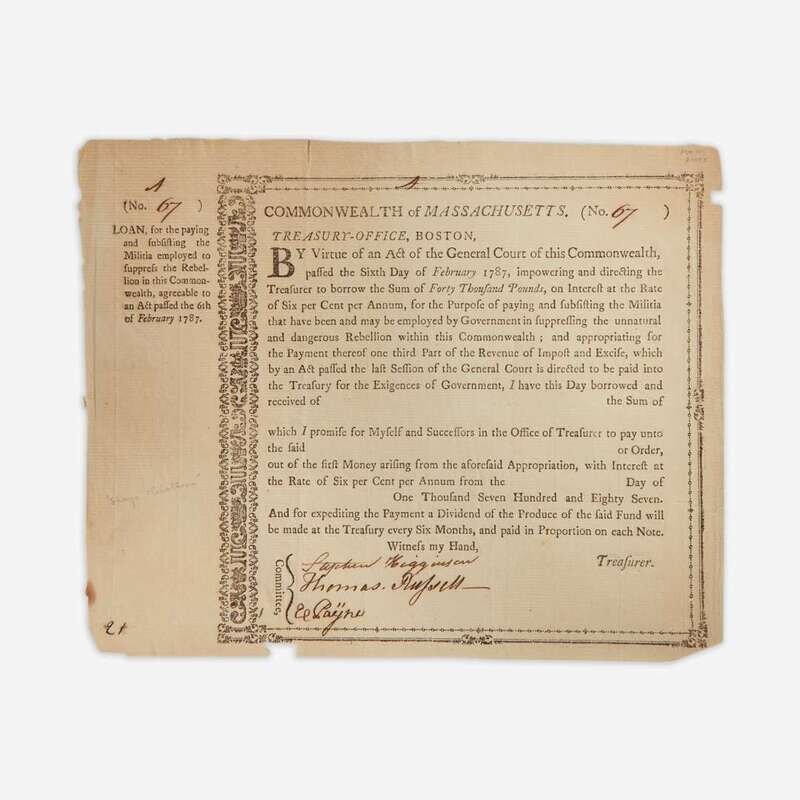 (No. 67 )
LOAN, for the paying
and subſiſting the
Militia employed to
ſuppreſs the Rebel-
lion in this Common-
wealth, agreeable to
an Act paſſed the 6th
of February 1787.
COMMONWEALTH of MASSACHUSETTS. (No. 67 )
TREASURY-OFFICE, BOSTON,
BY Virtue of an Act of the General Court of this Commonwealth,
paſſed the Sixth Day of February 1787, impowering and directing the
Treaſurer to borrow the Sum of Forty Thouſand Pounds, on Intereſt at the Rate
of Six per Cent per Annum, for the Purpoſe of paying and ſubſiſting the Militia
that have been and may be employed by Government in ſuppreſſing the unnatural
and dangerous Rebellion within this Commonwealth ; and appropriating for
the Payment thereof one third Part of the Revenue of Impoſt and Exciſe, which
by an Act paſſed the laſt Seſſion of the General Court is directed to be paid into
the Treaſury for the Exigences of Government, I have this Day borrowed and
received of the Sum of
which I promiſe for Myſelf and Succeſſors in the Office of Treaſurer to pay unto
the ſaid or Order,
out of the firſt Money ariſing from the aforeſaid Appropriation, with Intereſt at
the Rate of Six per Cent per Annum from the Day of
One Thouſand Seven Hundred and Eighty Seven.
And for expediting the Payment a Dividend of the Produce of the ſaid Fund will
be made at the Treaſury every Six Months, and paid in Proportion on each Note.
Witneſs my Hand,
Treaſurer.
Committee,
Stephen Higginson
Thomas Ruſsell
E Payne